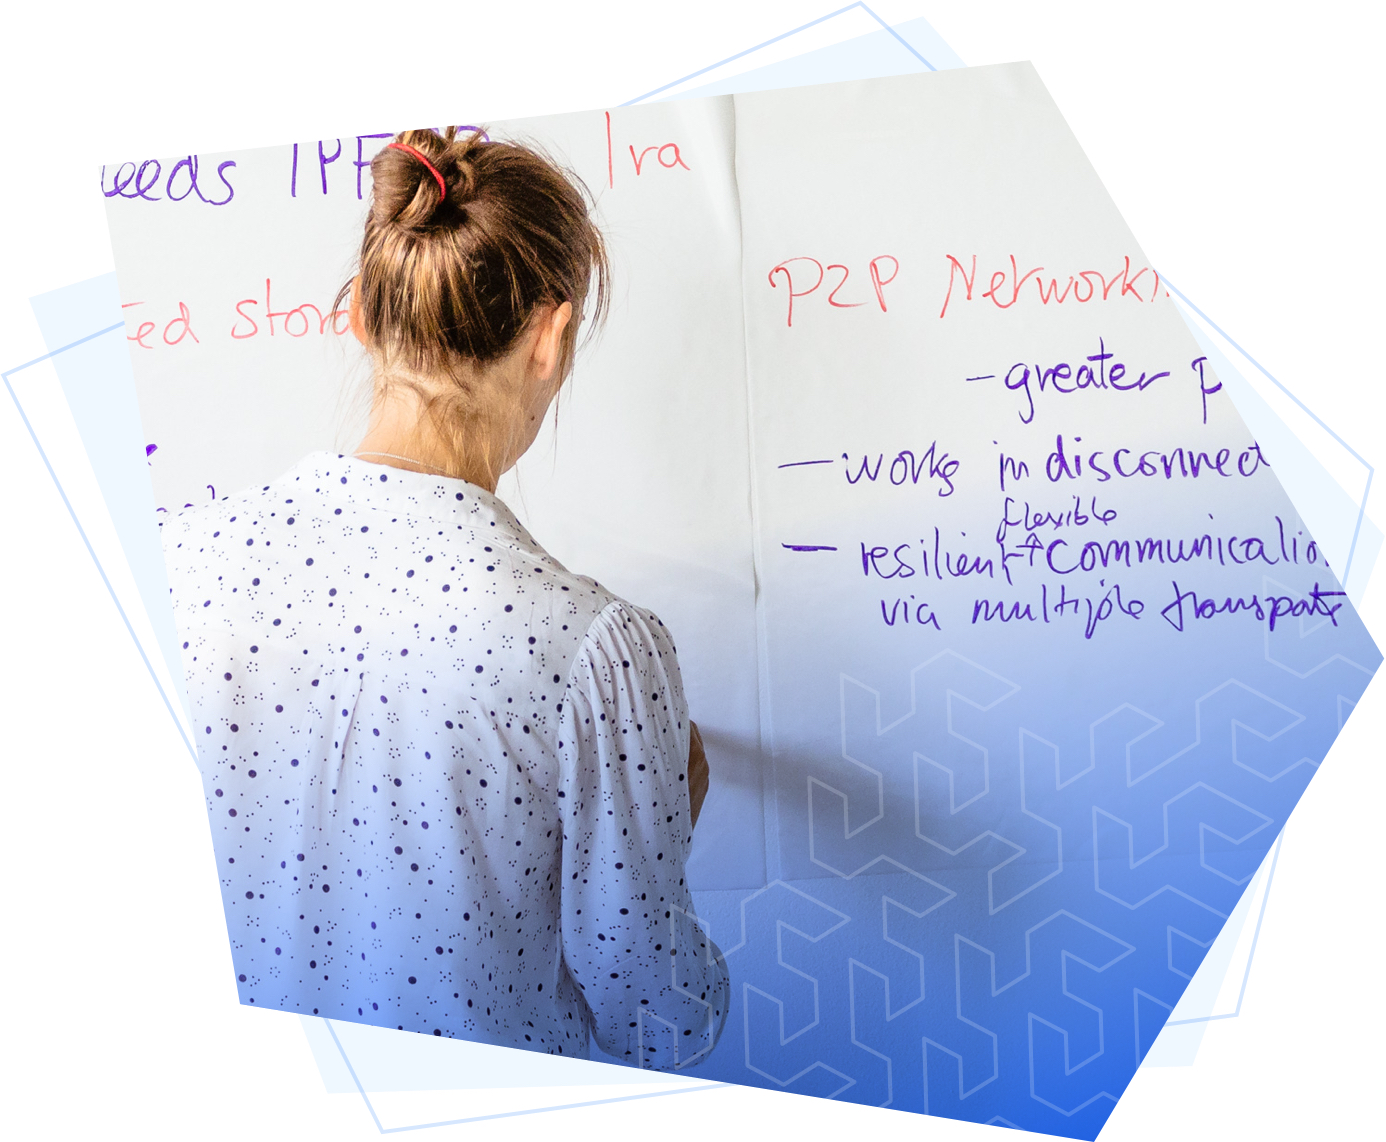 eeds IPF
Ira
ted stora
P2P Networki
- greater p
- works in disconnect
flexible
- resilient ↑ communicatio
via multiple transpot